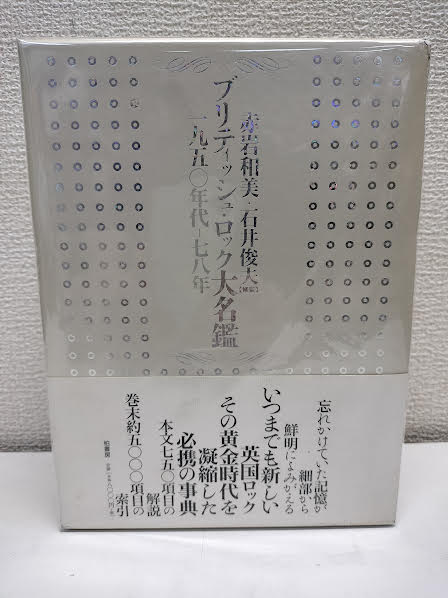 赤岩和美・石井俊夫【編集】
ブリティッシュ・ロック大名鑑
一九五〇年代―七八年
忘れかけていた記憶が、
細部から
鮮明によみがえる
いつまでも新しい
英国ロック
その黄金時代を
凝縮した
必携の事典
本文七五〇項目の
解説
巻末約五〇〇〇項目の
索引
柏書房